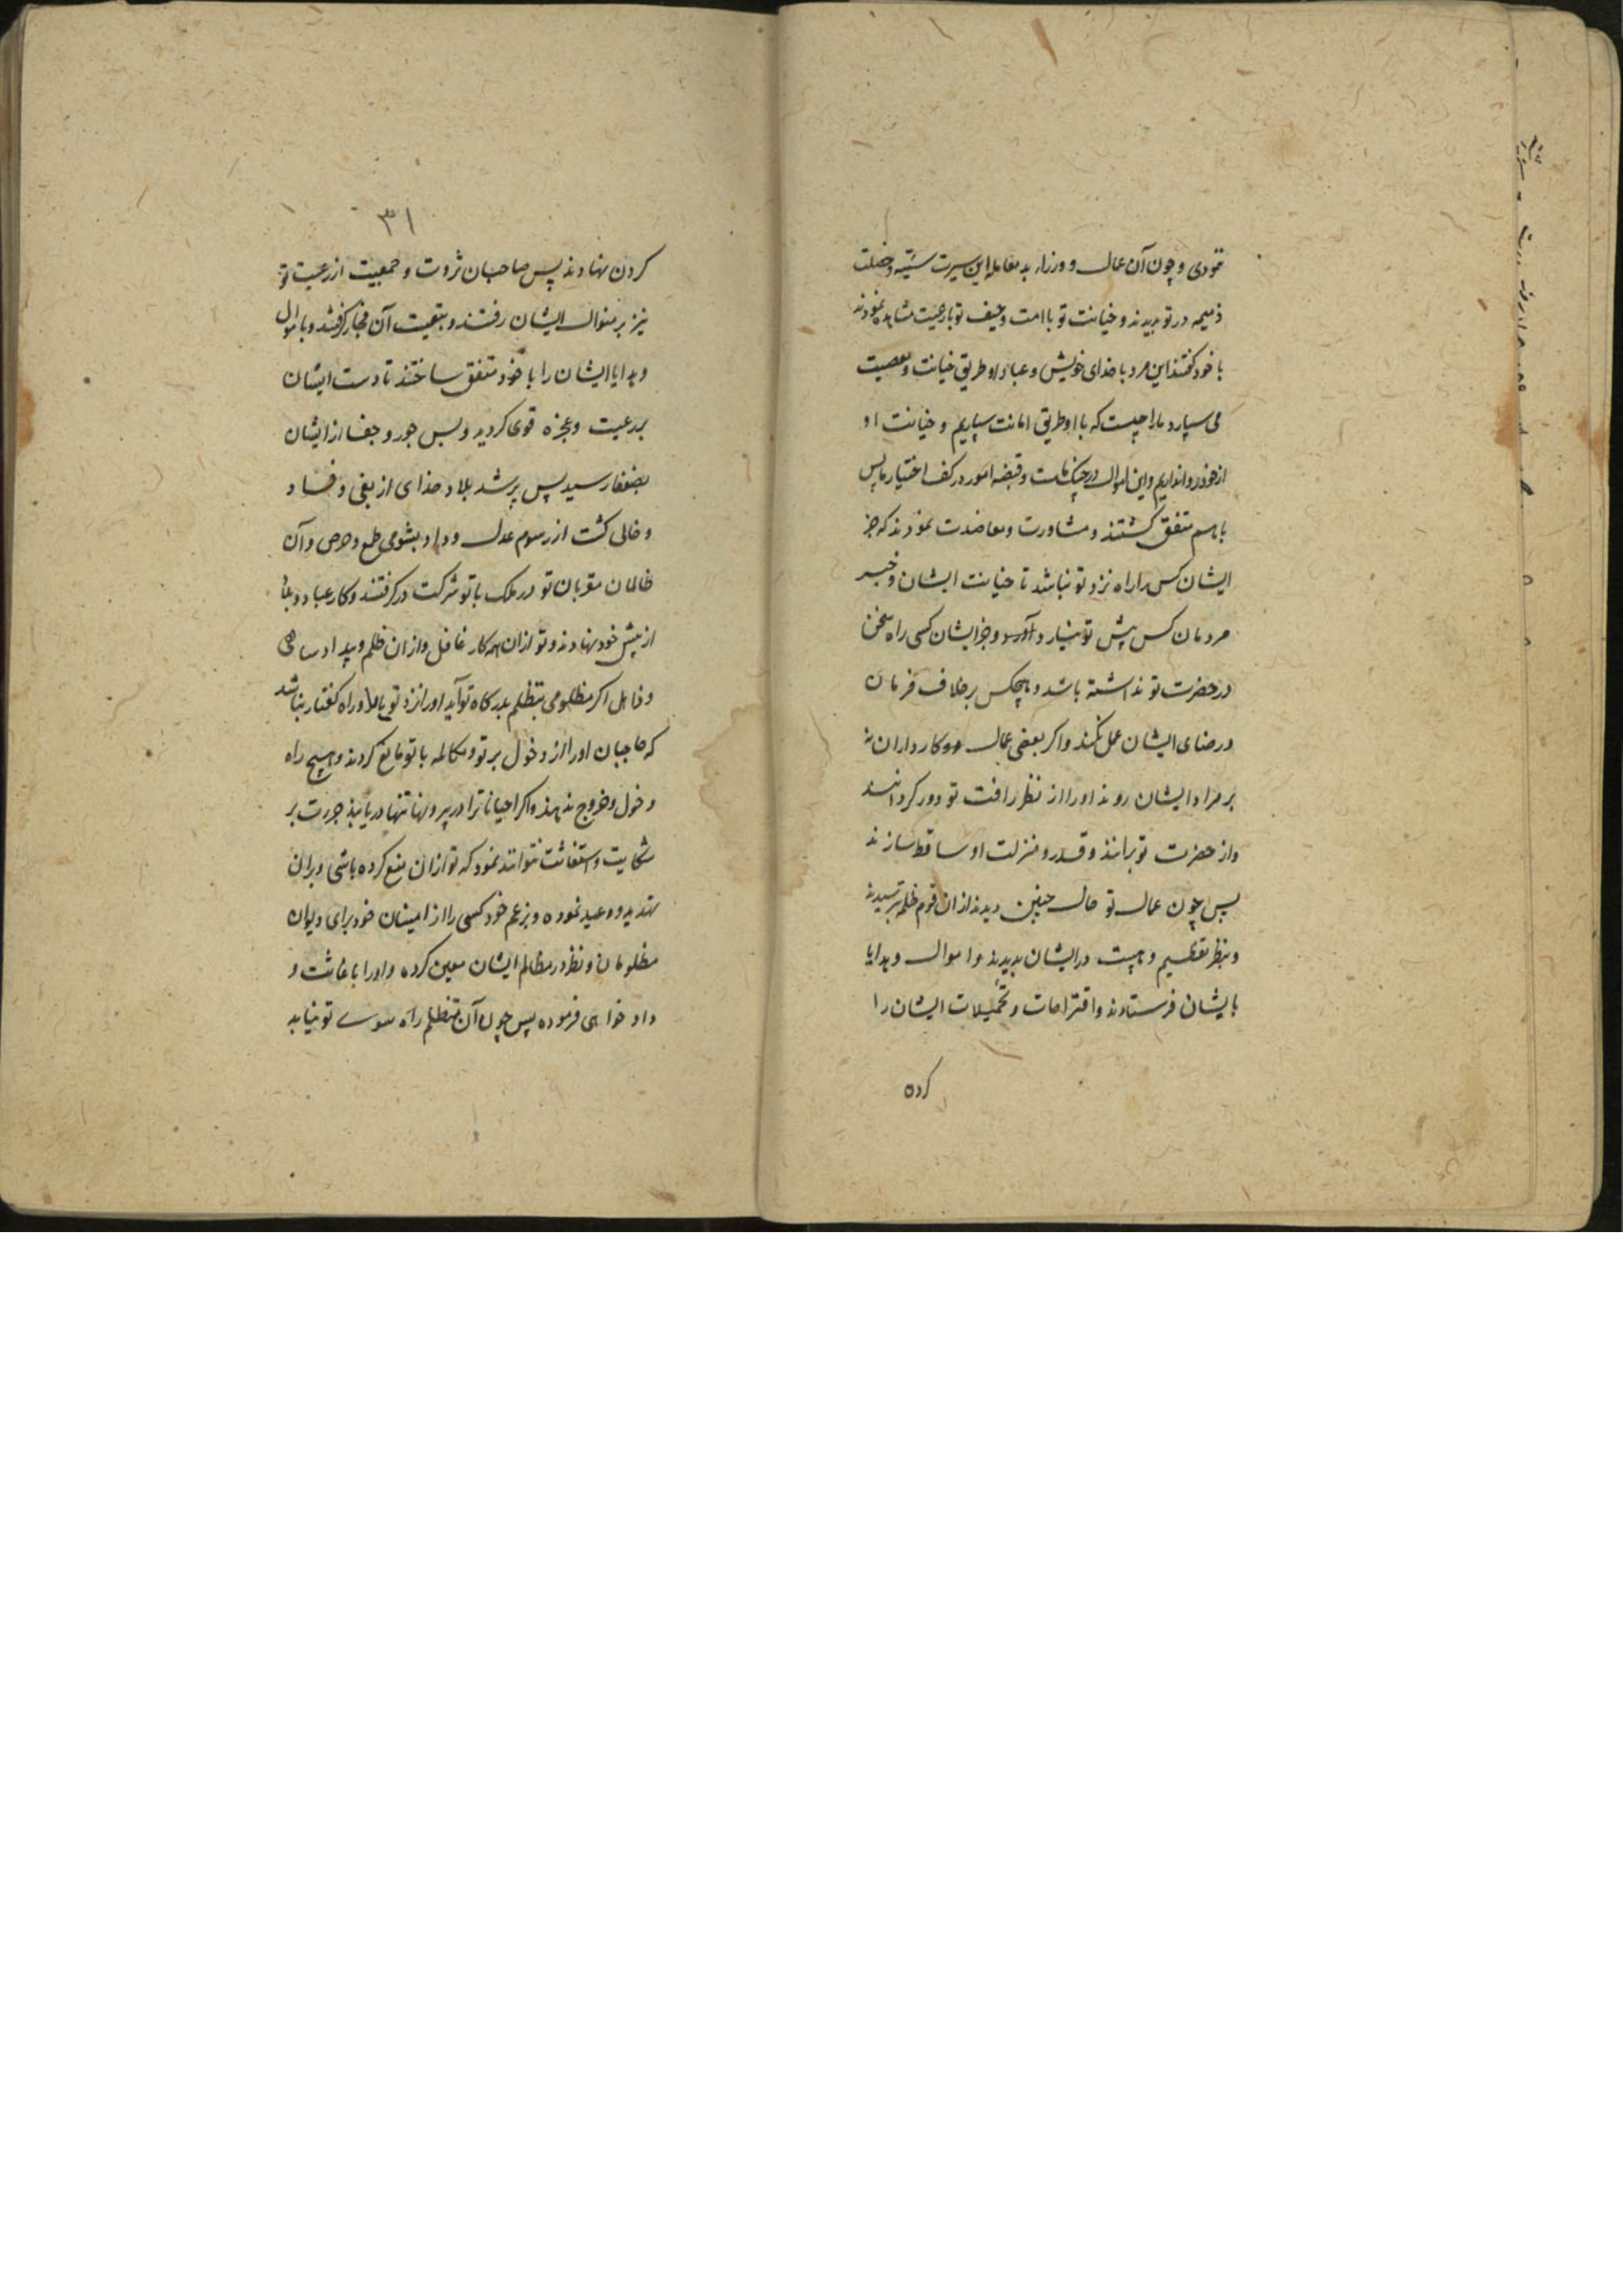 نمودی و چون آن عمال و وزراء بد معامله این سیرت سیّئه و خصلت
ذمیمه در تو بدیدند و خیانت تو با امت و حیف تو با رعیت مشاهده نمودند
با خود گفتند این مرد با خدای خویش و عباد او طریق خیانت و معصیت
می سپارد ما را چیست که با او طریق امانت سپاریم و خیانت او
از خود روا نداریم و این اموال در چنگ ماست و قبضه امور در کف اختیار ما پس
باهم متفق کشتند و مشاورت و معاضدت نمودند که جز
ایشان کس را راه نزد تو نباشد تا خیانت ایشان و خبر
مردمان کس پیش تو نیارد و جز ایشان کسی راه سخن
در حضرت تو نداشته باشد و هیچکس بر خلاف فرمان
و رضای ایشان عمل نکند و اکر بعضی عمال و کارداران نه
بر مراد ایشان روند او را از نظر رافت تو دور کردانند
و از حضرت تو برانند و قدر و منزلت او ساقط سازند
پس چون عمال تو حال چنین دیدند از ان قوم ظلم بترسیدند
و بنظر تعظیم و هیبت در ایشان بدیدند و اموال و هدایا
بایشان فرستادند و اقتراحات و تحمیلات ایشان را
کرده
۳۱
کردن نهادند پس صاحبان ثروت و جمعیت از رعیت تو
نیز بر منوال ایشان رفتند و بتبعیت آن هنجار کرفتند و باموال
و هدایا ایشان را با خود متفق ساختند تا دست ایشان
بر رعیت و عجزه قوی کردید و بس جور و جفا از ایشان
بضعفا رسید پس پر شد بلاد خدای از بغی و فساد
و خالی کشت از رسوم عدل و داد بشومی طمع و حرص و آن
ظالمان مقربان تو در ملک با تو شرکت در کرفتند و کار عباد و بلاد
از پیش خود نهادند و تو از ان همه کار غافل و از ان ظلم و بیداد ساهی
و ذاهل اکر مظلومی بتظلم بدرکاه تو آید او را نزد تو راه کفتار نباشد
که حاجبان او را از دخول بر تو و مکالمه با تو مانع کردند و هیچ راه
دخول و خروج ندهند و اکر احیانا ترا در بیرونها تنها دریابند جرت بر
شکایت و استغاثت نتوانند نمود که تو از ان منع کرده باشی و بران
تهدید و وعید نموده و بزعم خود کسی را از امینان خود برای دیوان
مظلومان و نظر در مظالم ایشان معین کرده و او را باغاثت و
داد خواهی فرموده پس چون آن متظلم راه سوی تو نیابد